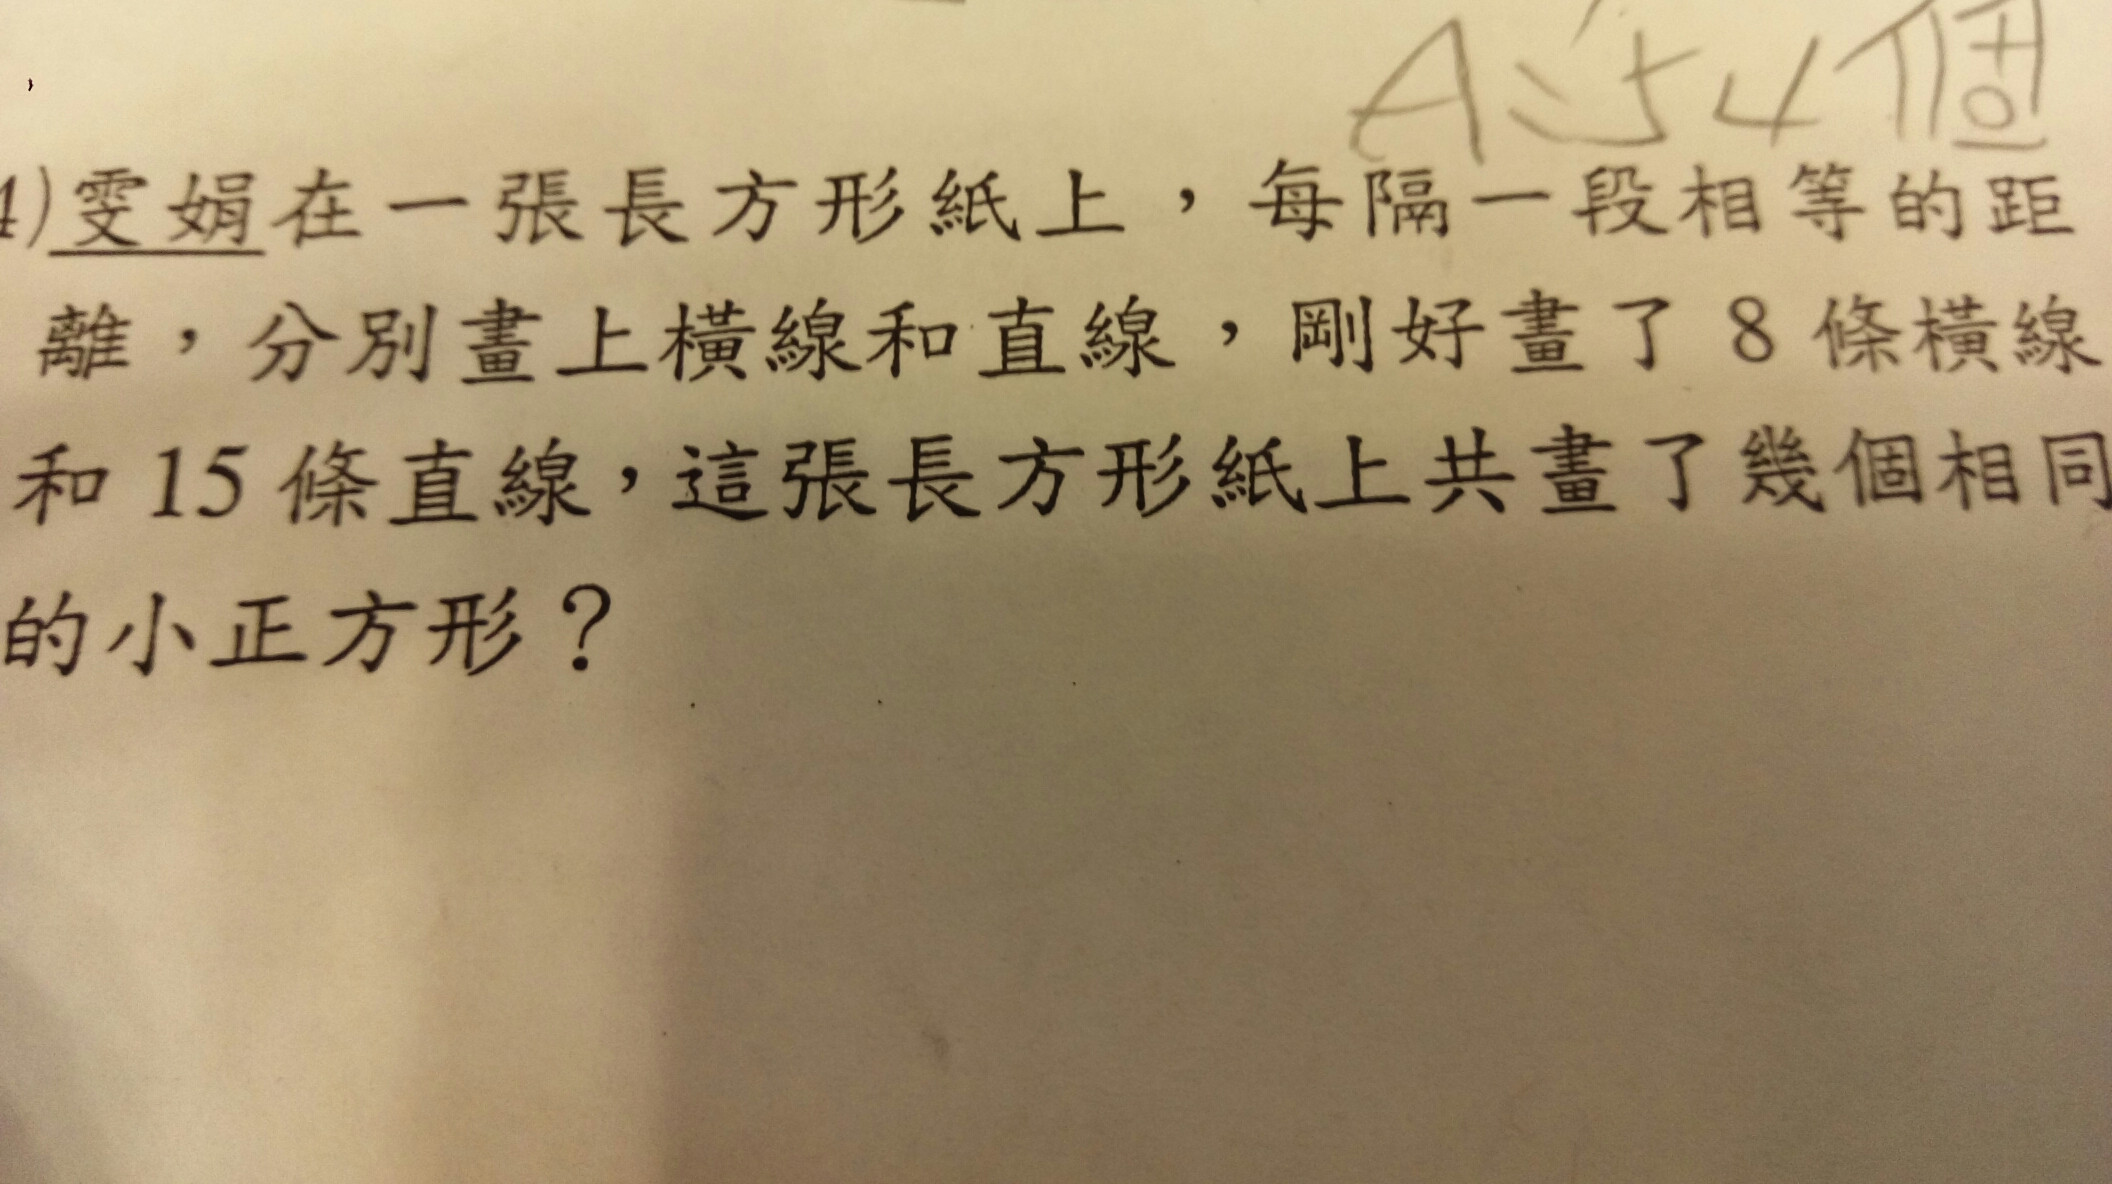 A:54個
4)雯娟在一張長方形紙上,每隔一段相等的距
離,分別畫上橫線和直線,剛好畫了 8 條橫線
和 15 條直線,這張長方形紙上共畫了幾個相同
的小正方形?